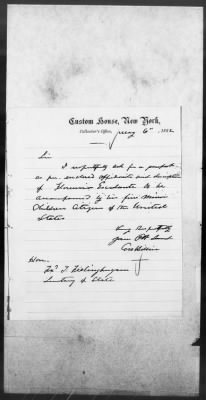 Custom House, New York,
Collector's Office, May 6th, 1882
Sir
I respectfully ask for a passport
as per enclosed affidavits and description
of Escalante to be
accompanied by his five minor
Children Citizens of the United
States
Very Respectfully
Your Obt Servt
Hon.
Fredk T. Frelinghuysen
Secretary of State